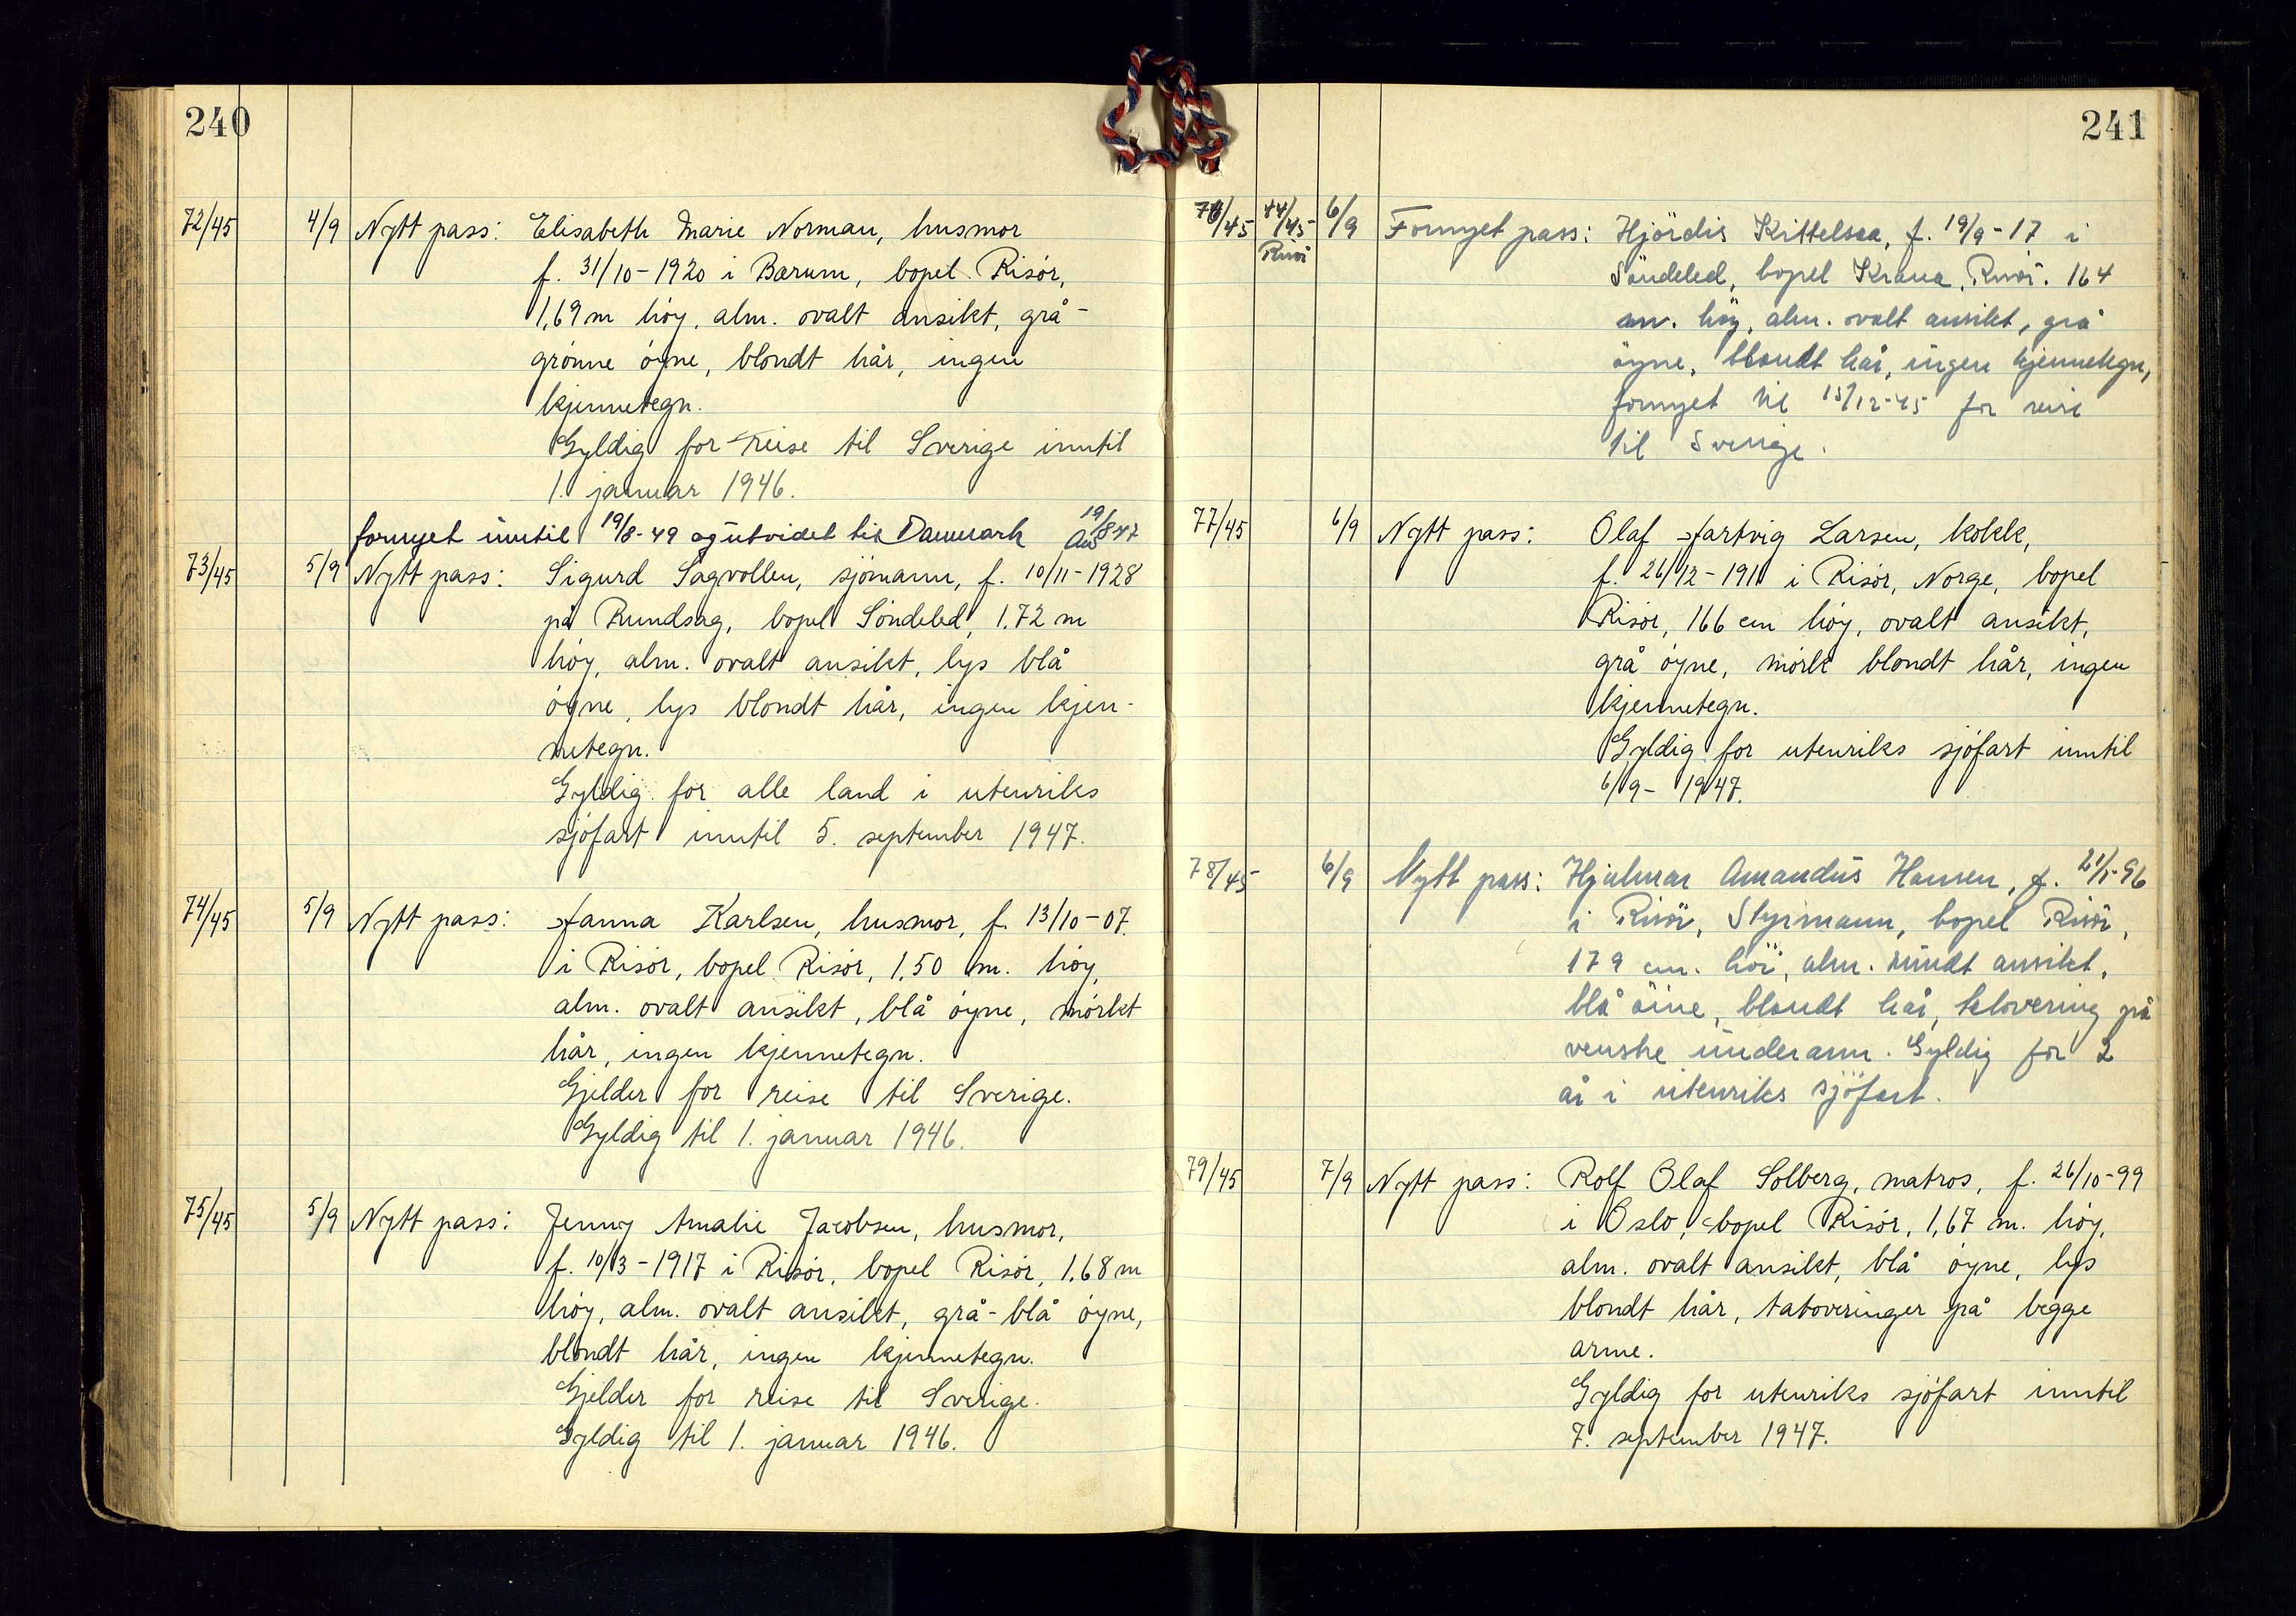 240
72/45 4/9 Nytt pass: Elisabeth Marie Norman, husmor
f. 31/10-1920 i Bærum, bopel Risór,
1,69 m hóy, alm. ovalt ansikt, grå-
grónne óyne, blondt hår, ingen
kjennetegn.
Gyldig for reise til Sverige inntil
1. januar 1946.
fornyet inntil 19/8-49 og utvidet til Danmark 19/8 47
73/45 5/9 Nytt pass: Sigurd Sagvollen, sjómann, f. 10/11-1928
på Rundsag, bopel Sóndeled, 1.72 m
hóy, alm. ovalt ansikt, lys blå
óyne, lys blondt hår, ingen kjen-
netegn.
Gyldig for alle land i utenriks
sjófart inntil 5. september 1947.
74/45 5/9 Nytt pass: Hanna Karlsen, husmor, f. 13/10-07.
i Risór, bopel Risór, 1,50 m. hóy,
alm. ovalt ansikt, blå óyne, mórkt
hår, ingen kjennetegn.
Gjelder for reise til Sverige.
Gyldig til 1. januar 1946.
75/45 5/9 Nytt pass: Jenny Amalie Jacobsen, husmor,
f. 10/3-1917 i Risór, bopel Risór, 1,68 m
hóy, alm. ovalt ansikt, grå-blå óyne,
blondt hår, ingen kjennetegn.
Gjelder for reise til Sverige.
Gyldig til 1. januar 1946.
241
76/45 44/45 Risör 6/9 Fornyet pass: Hjördis Kittelsaa, f. 19/9-17 i
Söndeled, bopel Krana, Risör. 164
cm. höy, alm. ovalt ansikt, grå
öyne, blondt hår, ingen kjennetegn,
fornyet til 15/12-45 for reise
til Sverige.
77/45 6/9 Nytt pass: Olaf Hartvig Larsen, kokk,
f. 26/12-1911 i Risór, Norge, bopel
Risór, 166 cm hóy, ovalt ansikt,
grå óyne, mórk blondt hår, ingen
kjennetegn.
Gyldig for utenriks sjófart inntil
6/9-1947.
78/45 6/9 Nytt pass: Hjalmar Amandus Hansen, f. 21/5-96
i Risör, Styrmann, bopel Risör,
179 cm. höi, alm. rundt ansikt,
blå öine, blondt hår, tatovering på
venstre underarm. Gyldig for 2
år i utenriks sjöfart.
79/45 7/9 Nytt pass: Rolf Olaf Solberg, matros, f. 26/10-99
i Oslo, bopel Risór, 1,67 m. hóy,
alm. ovalt ansikt, blå óyne, lys
blondt hår, tatoveringer på begge
arme.
Gyldig for utenriks sjófart inntil
7. september 1947.